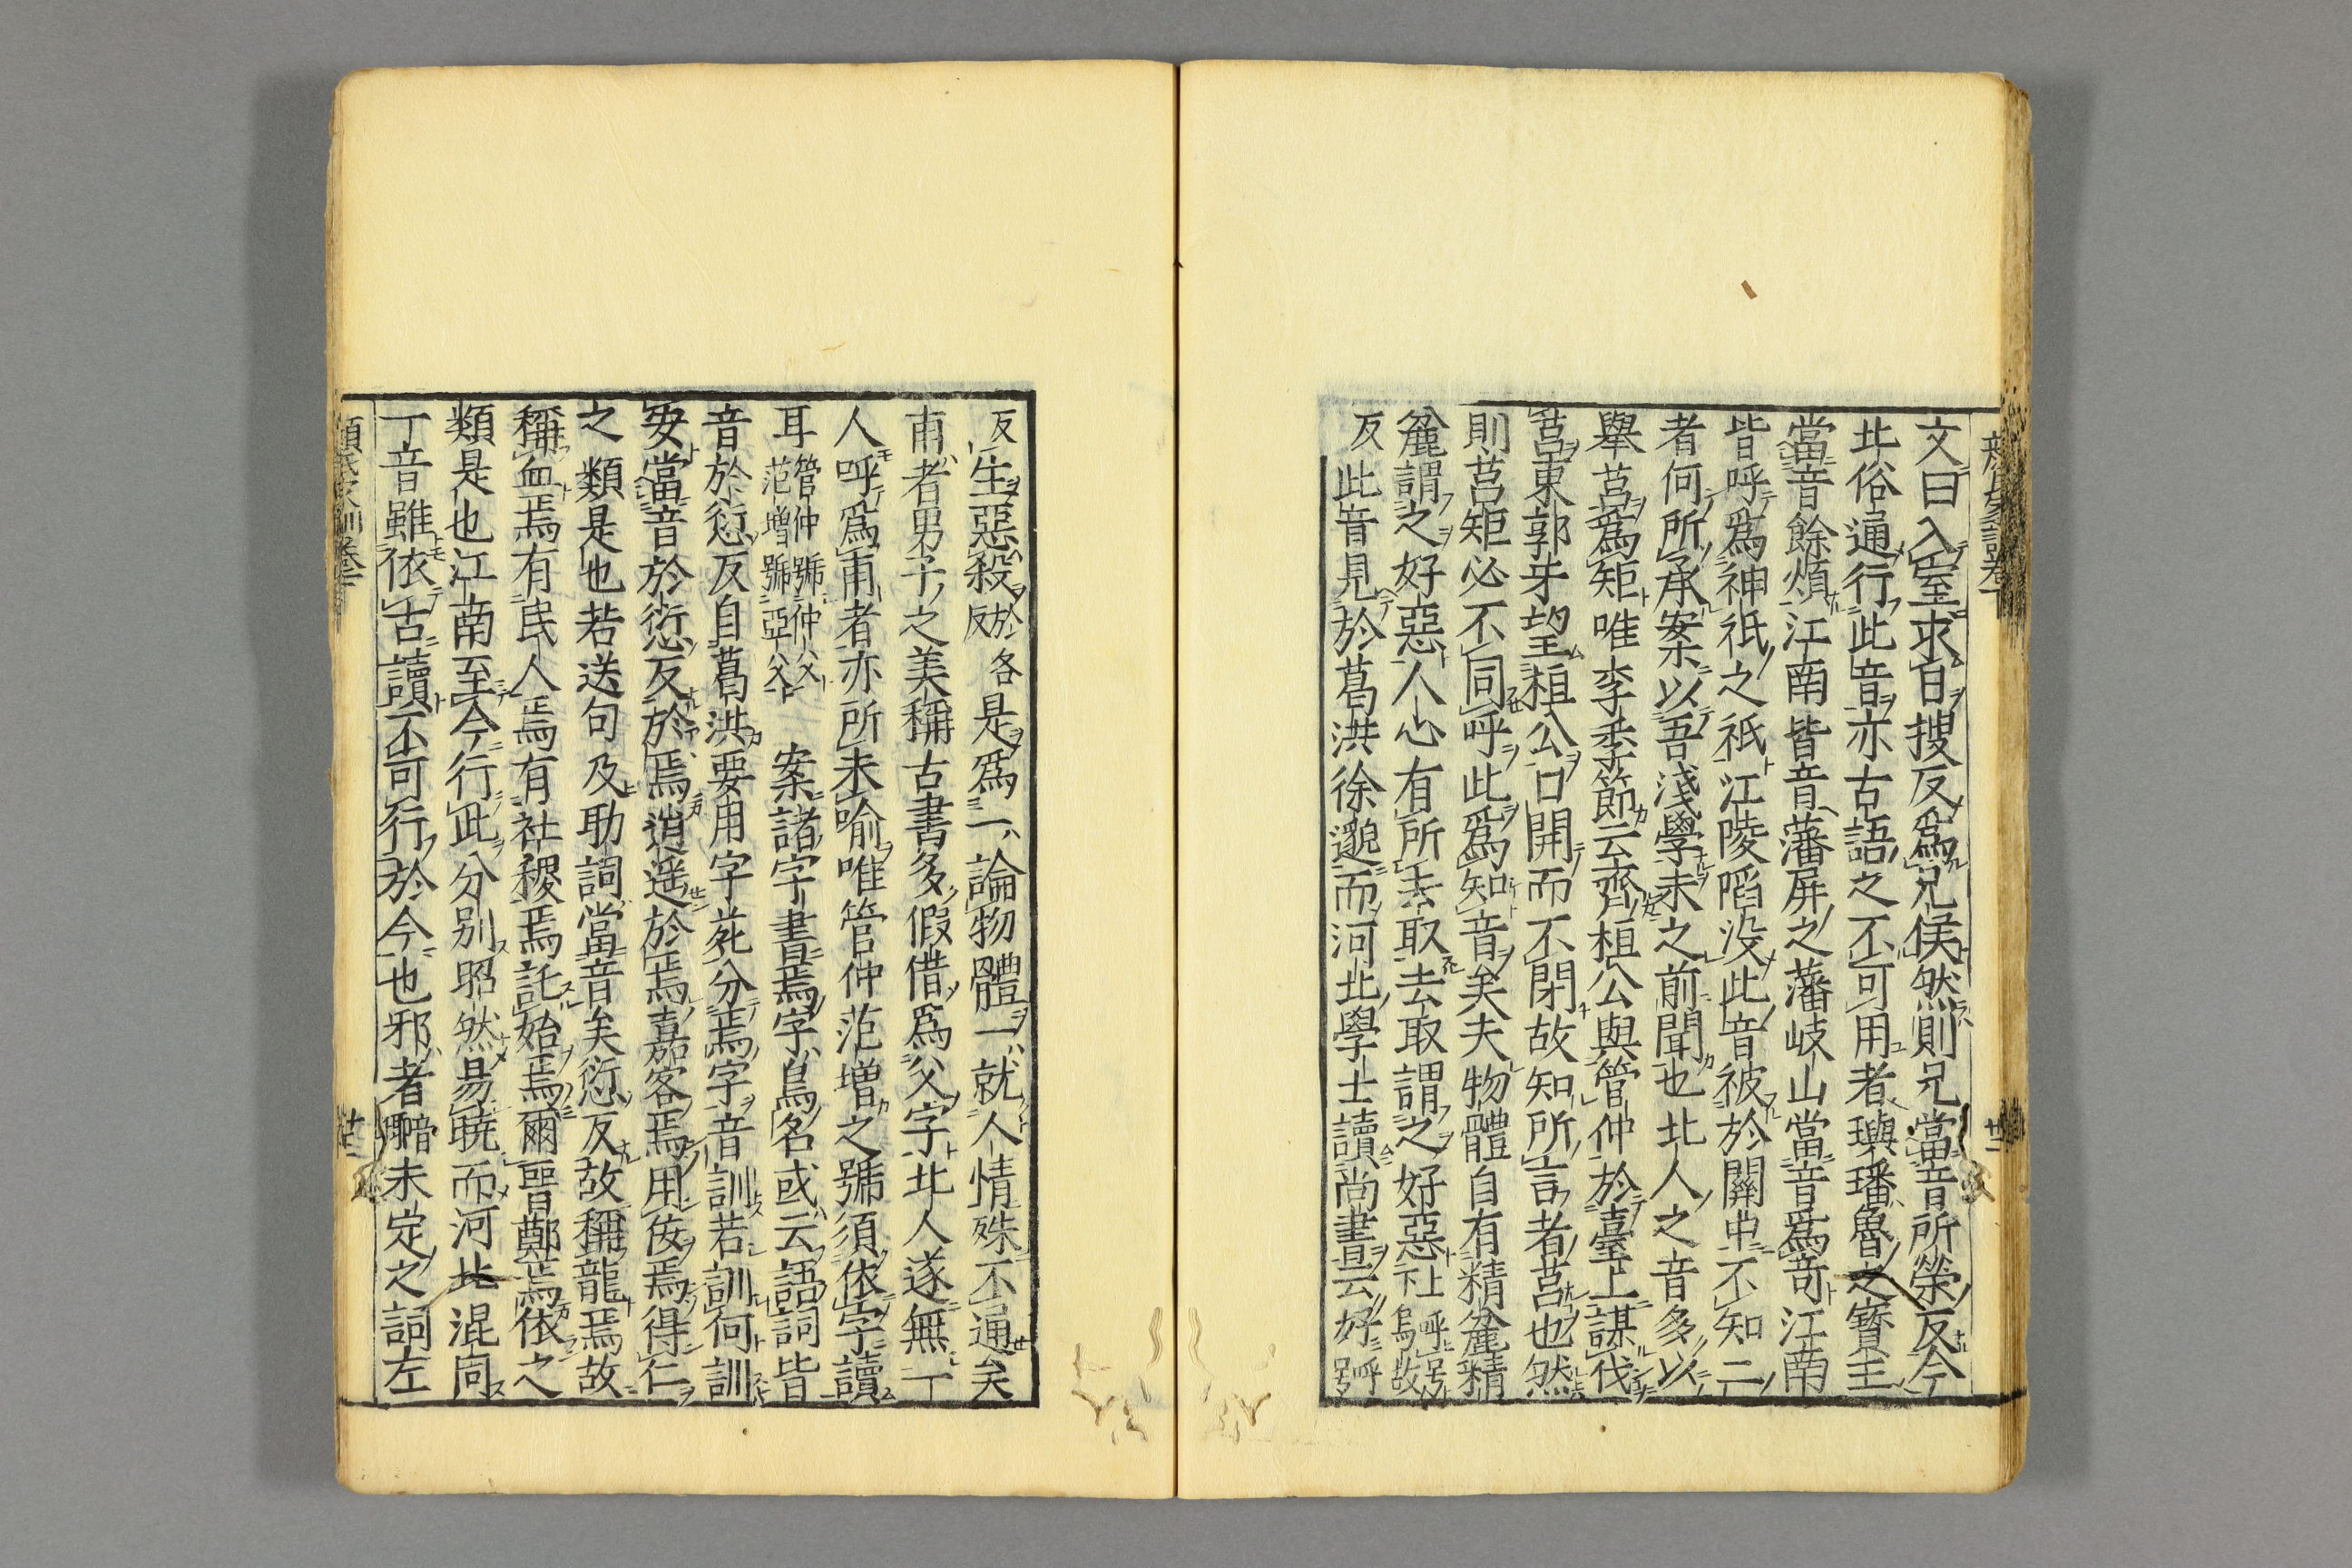 文曰入室求曰搜反爲兄侯然則兄當音所榮反今
北俗通行此音亦古語之不可用者璵璠魯之寶玉
當音餘煩江南皆音藩屏之藩岐山當音爲竒江南
皆呼爲神祇之祇江陵陷没此音被於關中不知二
者何所承案以吾淺學未之前聞也北人之音多以
舉莒爲矩唯李季節云齊桓公與管仲於臺上謀伐
莒東郭牙望桓公口開而不閉故知所言者莒也然
則莒矩必不同呼此爲知音矣夫物體自有精麁精
麁謂之好惡人心有所去取去取謂之好惡上呼號下烏故
反此音見於葛洪徐邈而河北學士讀尚書云好呼號
反生惡殺於各反是爲一論物體一就人情殊不通矣
甫者男子之美稱古書多假借爲父字北人遂無一
人呼爲甫者亦所未喻唯管仲范增之號須依字讀
耳管仲號仲父范增號亞父案諸字書焉字鳥名或云語詞皆
音於愆反自葛洪要用字苑分焉字音訓若訓何訓
安當音於愆反於焉逍遥於焉嘉客焉用佞焉得仁
之類是也若送句及助詞當音矣愆反故稱龍焉故
稱血焉有民人焉有社稷焉託始焉爾晉鄭焉依之
類是也江南至今行此分别昭然易曉而河北混同
一音雖依古讀不可行於今也邪者未定之詞左
顔氏家訓卷下